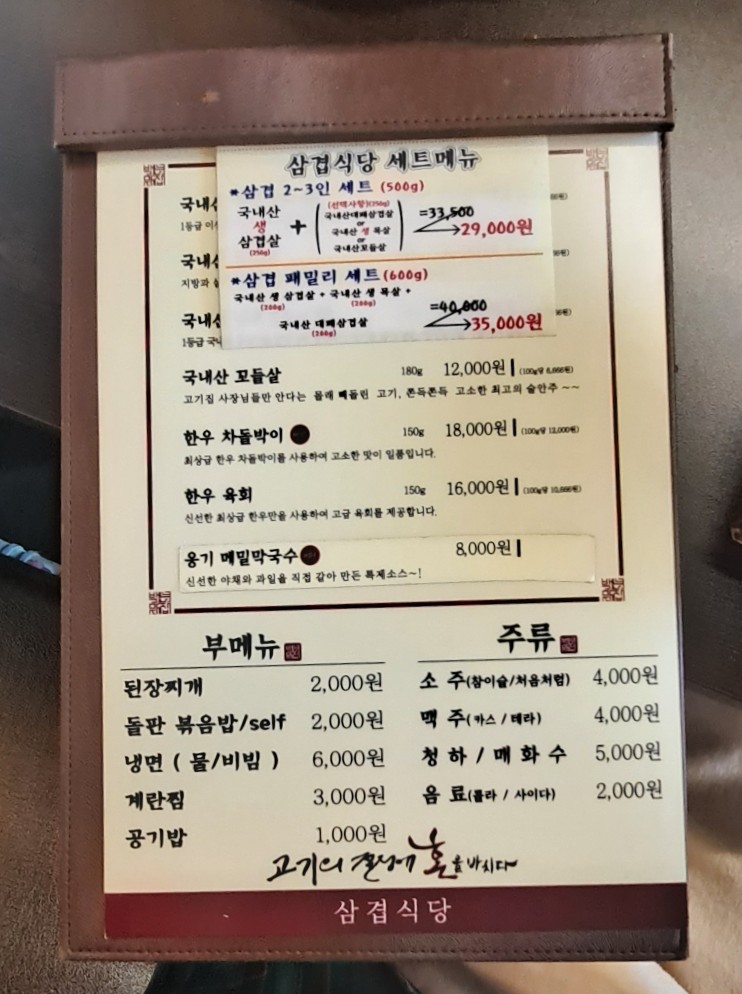 삼겹식당 세트메뉴
*삼겹 2~3인 세트 (500g)
국내산 생 삼겹살 (250g) + (선택사항)(250g) 국내산대패삼겹살 or 국내산 생 목살 or 국내산꼬들살 =33,500 → 29,000원
*삼겹 패밀리 세트(600g)
국내산 생 삼겹살 + 국내산 생 목살 +
(200g) (200g)
국내산 대패삼겹살
(200g)
=40,000 → 35,000원
국내산
1등급
국내산
지방과
국내산
1등급
국내산 꼬들살 180g 12,000원 (100g당 6,666원)
고기집 사장님들만 안다는 몰래 빼돌린 고기, 쫀득쫀득 고소한 최고의 술안주 ~~
한우 차돌박이 150g 18,000원 (100g당 12,000원)
최상급 한우 차돌박이를 사용하여 고소한 맛이 일품입니다.
한우 육회 150g 16,000원 (100g당 10,666원)
신선한 최상급 한우만을 사용하여 고급 육회를 제공합니다.
옹기 메밀막국수 8,000원
신선한 야채와 과일을 직접 갈아 만든 특제소스~!
부메뉴
된장찌개 2,000원
돌판 볶음밥/self 2,000원
냉면 ( 물/비빔 ) 6,000원
계란찜 3,000원
공기밥 1,000원
주류
소 주(참이슬/처음처럼) 4,000원
맥 주(카스 / 테라) 4,000원
청 하 / 매 화 수 5,000원
음 료(콜라 / 사이다) 2,000원
고기의 결정에 혼을 바치다~
삼겹식당